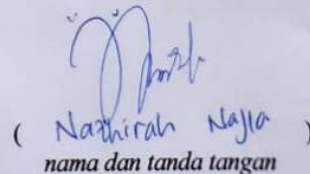 ( Nazhirah Najla )
nama dan tanda tangan